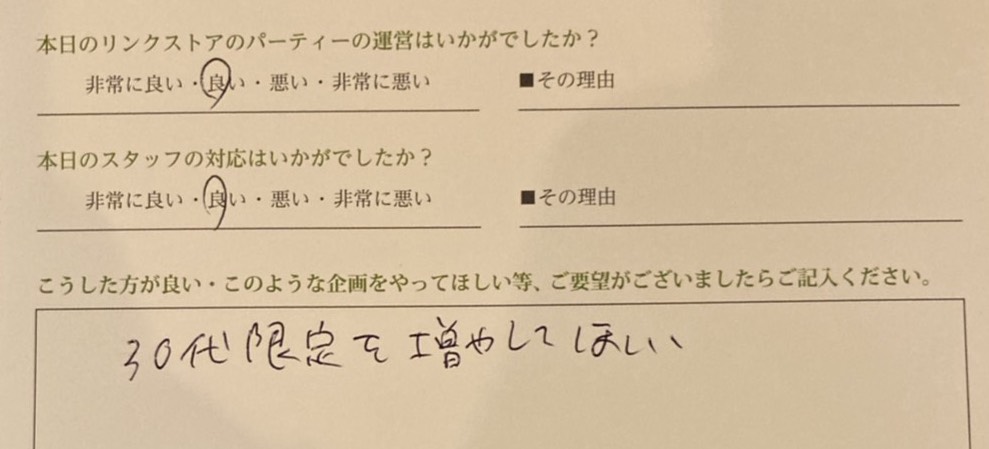 本日のリンクストアのパーティーの運営はいかがでしたか？
非常に良い・良い・悪い・非常に悪い ■その理由
本日のスタッフの対応はいかがでしたか？
非常に良い・良い・悪い・非常に悪い ■その理由
こうした方が良い・このような企画をやってほしい等、ご要望がございましたらご記入ください。
30代限定を増やしてほしい